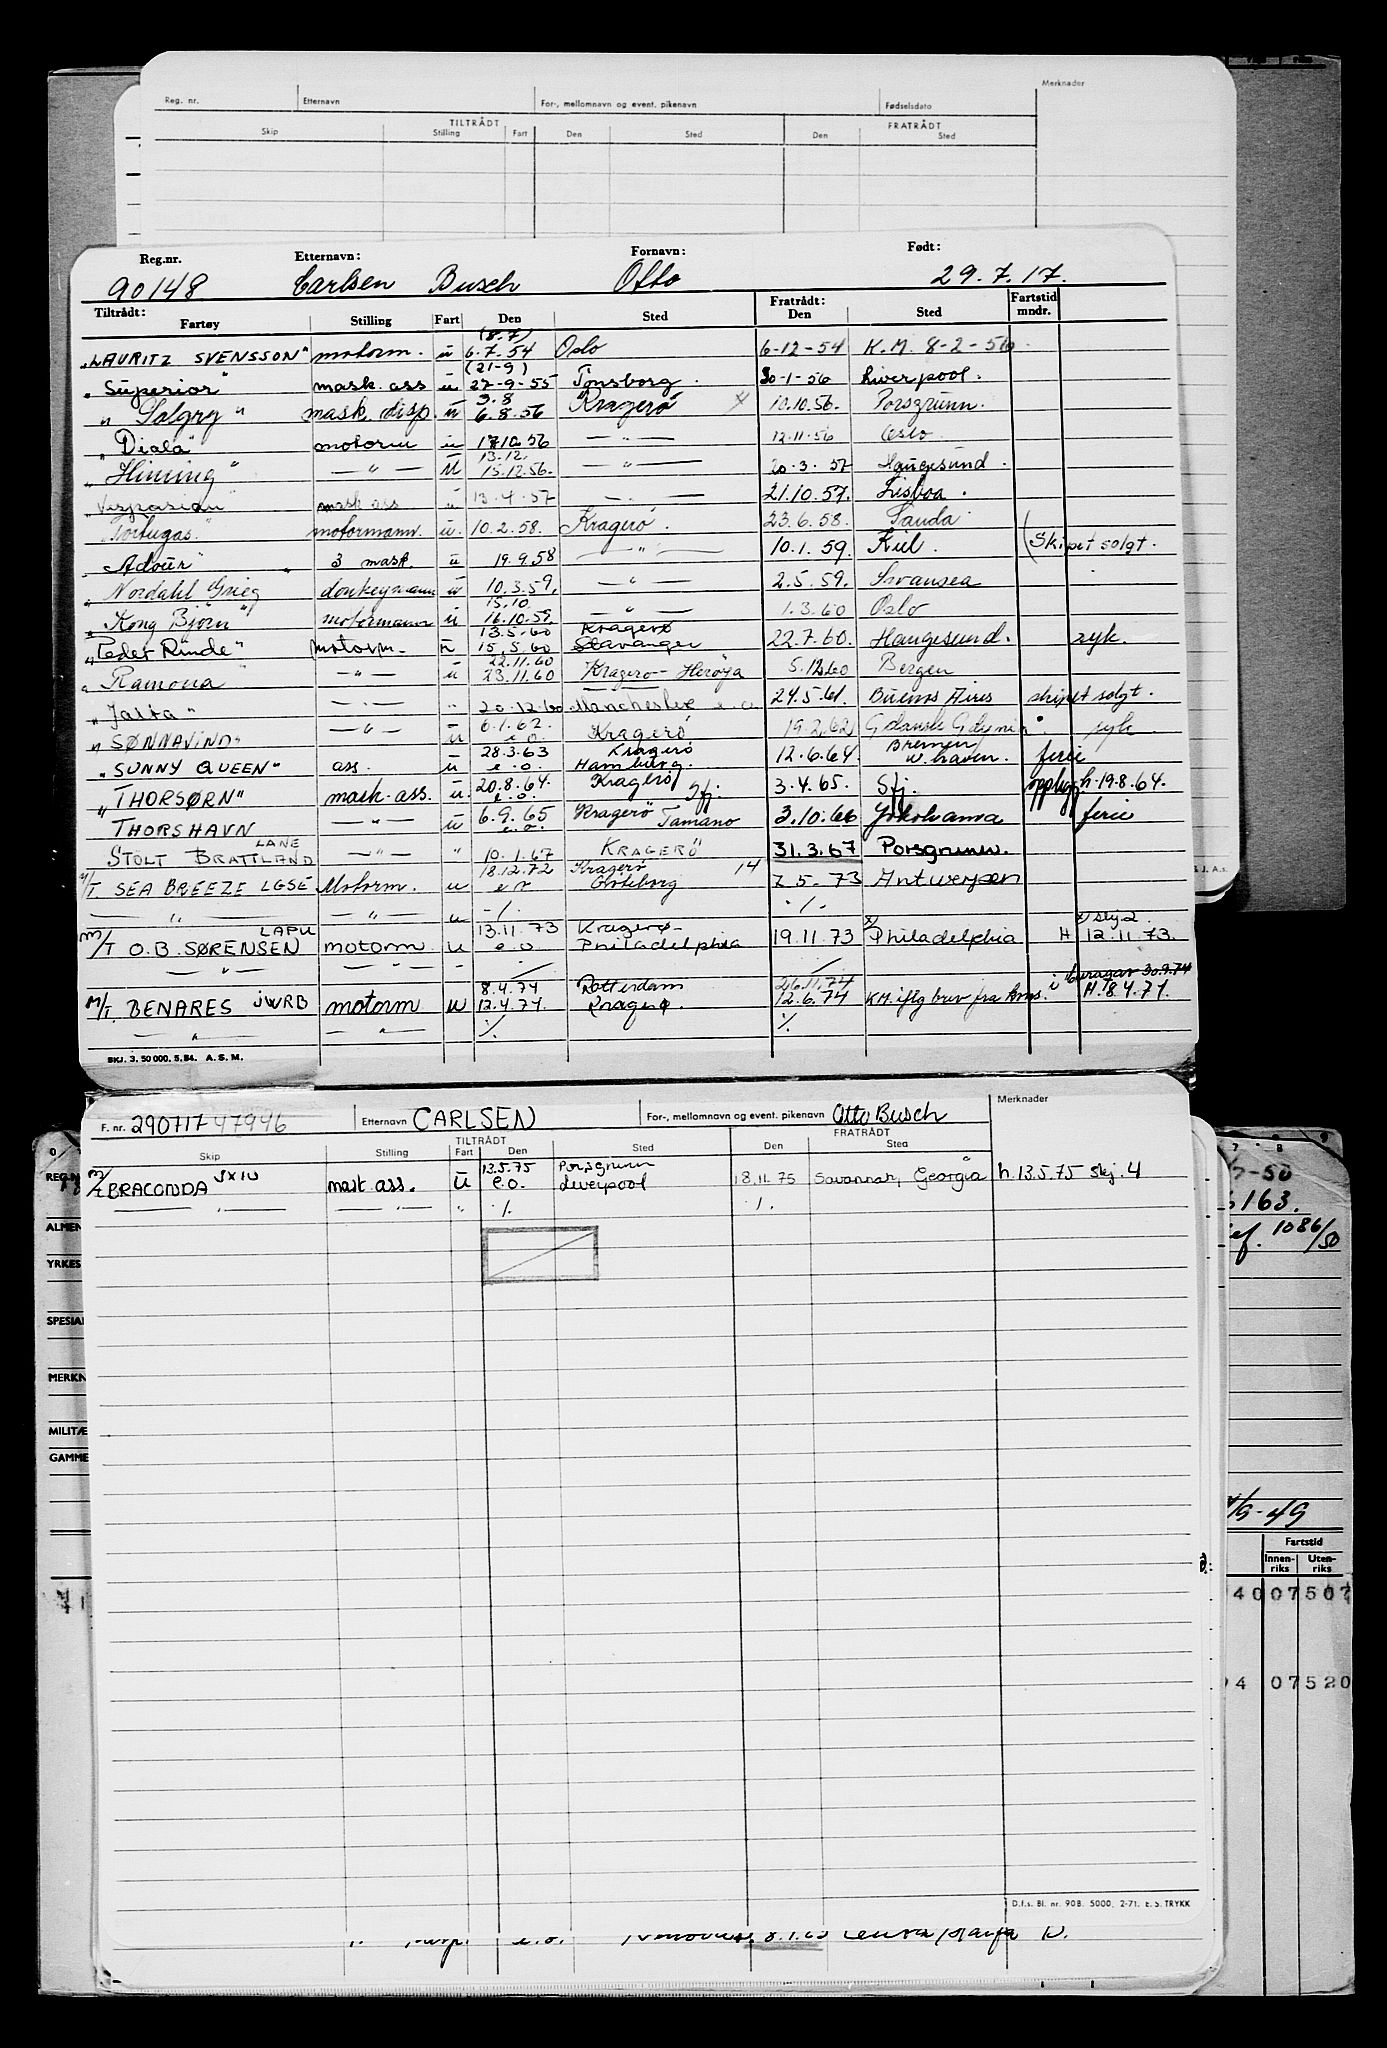 Merknader
Reg. nr. Etternavn For-, mellomnavn og event. pikenavn Fødselsdato
TILTRÅDT FRATRÅDT
Skip Stilling Fart Den Sted Den Sted
Reg.nr. Etternavn: Fornavn: Født:
90148 Carlsen Busch Otto 29.7.17.
Tiltrådt: Fratrådt: Fartstid
Fartøy Stilling Fart Den Sted Den Sted mndr.
(8.7)
"LAURITZ SVENSSON" motorm. u 6.7.54 Oslo 6-12-54 K.M. 8-2-56
(21-9)
"Superior" mask. ass u 27-9-55 Tønsberg. 30-1-56 Liverpool.
3.8
"Solgry" mask. disp. u 6.8.56 Kragerø 10.10.56. Porsgrunn.
"Diala" motorm u 17.10.56 — " — 12.11.56 Oslo
13.12.
"Himing" — " — u 15.12.56. — " — 20.3.57 Haugesund.
"Vespasian" mask ass u 13.4.57 — " — 21.10.57. Lisboa.
"Tortugas" motormann. u. 10.2.58. Kragerø. 23.6.58. Sauda
"Adour" 3 mask. u 19.9.58 — " — 10.1.59. Kiel. (Skipet solgt.
"Nordahl Grieg donkeymann u 10.3.59. — " — 2.5.59. Swansea
15.10.
"Kong Bjørn" motormann u 16.10.59. — " — 1.3.60 Oslo
13.5.60 Kragerø
"Peder Rinde" motorm. u 15.5.60 Stavanger 22.7.60. Haugesund. syk.
22.11.60
"Ramona — " — u 23.11.60 Kragerø - Herøya 5.12.60 Bergen
"Jalta" — " — " 20.12.60 Manchester e.o. 24.5.61. Buenos Aires skipet solgt.
6.1.62.
"SØNNAVIND" — " — u e.o. Kragerø 19.2.62 Gdansk Gdynia. syk
28.3.63 Kragerø Bremen
"SUNNY QUEEN" ass. u e.o. Hamburg. 12.6.64. w.haven. ferie
20.8.64. Kragerø
"THORSØRN" mask. ass. u. e.o. Sfj. 3.4.65. Sfj. opplegg h. 19.8.64.
6.9.65 Kragerø
THORSHAVN — " — u e.o. Tamano 3.10.66 Yokohama ferie
LANE
STOLT BRATTLAND — " — " 10.1.67 KRAGERØ 31.3.67 Porsgrunn.
18.12.72 Kragerø 14
M/T. SEA BREEZE LGSE Motorm. u e.o Göteborg 7.5.73 Antwerpen
— " — — " — u -/. ./.
LAPU 13.11.73 Kragerø- x) x) skj 2.
M/T O.B. SØRENSEN motorm u e.o. Philadelphia 19.11.73 Philadelphia H 12.11.73.
— " — — " —
8.4.74 Rotterdam 26.11.74
M/T. BENARES JWRB motorm u 12.4.74. Kragerø 12.6.74 KM. iflg brev fra kons. i Curacao 30.9.74 H. 8.4.74.
— " — ./. ./.
SKJ. 3. 50 000. 5. 54. A. S. M.
J. A. s.
F. nr. 290717 47946 Etternavn CARLSEN For-, mellomnavn og event. pikenavn Otto Busch Merknader
TILTRÅDT FRATRÅDT
Skip Stilling Fart Den Sted Den Sted
13.5.75 Porsgrunn
M/T BRACONDA JXIU mask. ass. u e.o. Liverpool 18.11.75 Savannah, Georgia h. 13.5.75 skj. 4
— " — — " — " ./. ./.
D.f.s. Bl. nr. 90B. 5000. 2-71. E. S. TRYKK
e.o. 8.1.60
REG.N
ALMEN
YRKES
SPESIAL
MERKN
MILITÆ
GAMME
7 8 9
-50
163.
1086/50
/9-49
Fartstid
Innen-riks Uten-riks
40 07507
4 07520